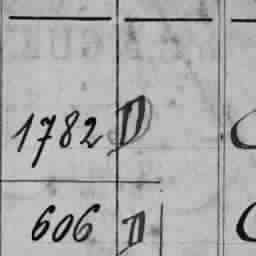 1782 D
606 D